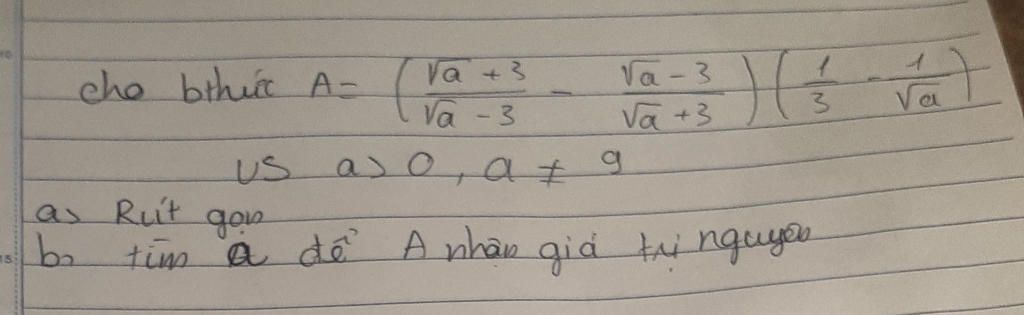 cho bthức A = (√a + 3 / √a - 3 - √a - 3 / √a + 3) (1/3 - 1/√a)
vs a > 0, a ≠ 9
a, Rút gọn
b, tìm a để A nhận giá trị nguyên